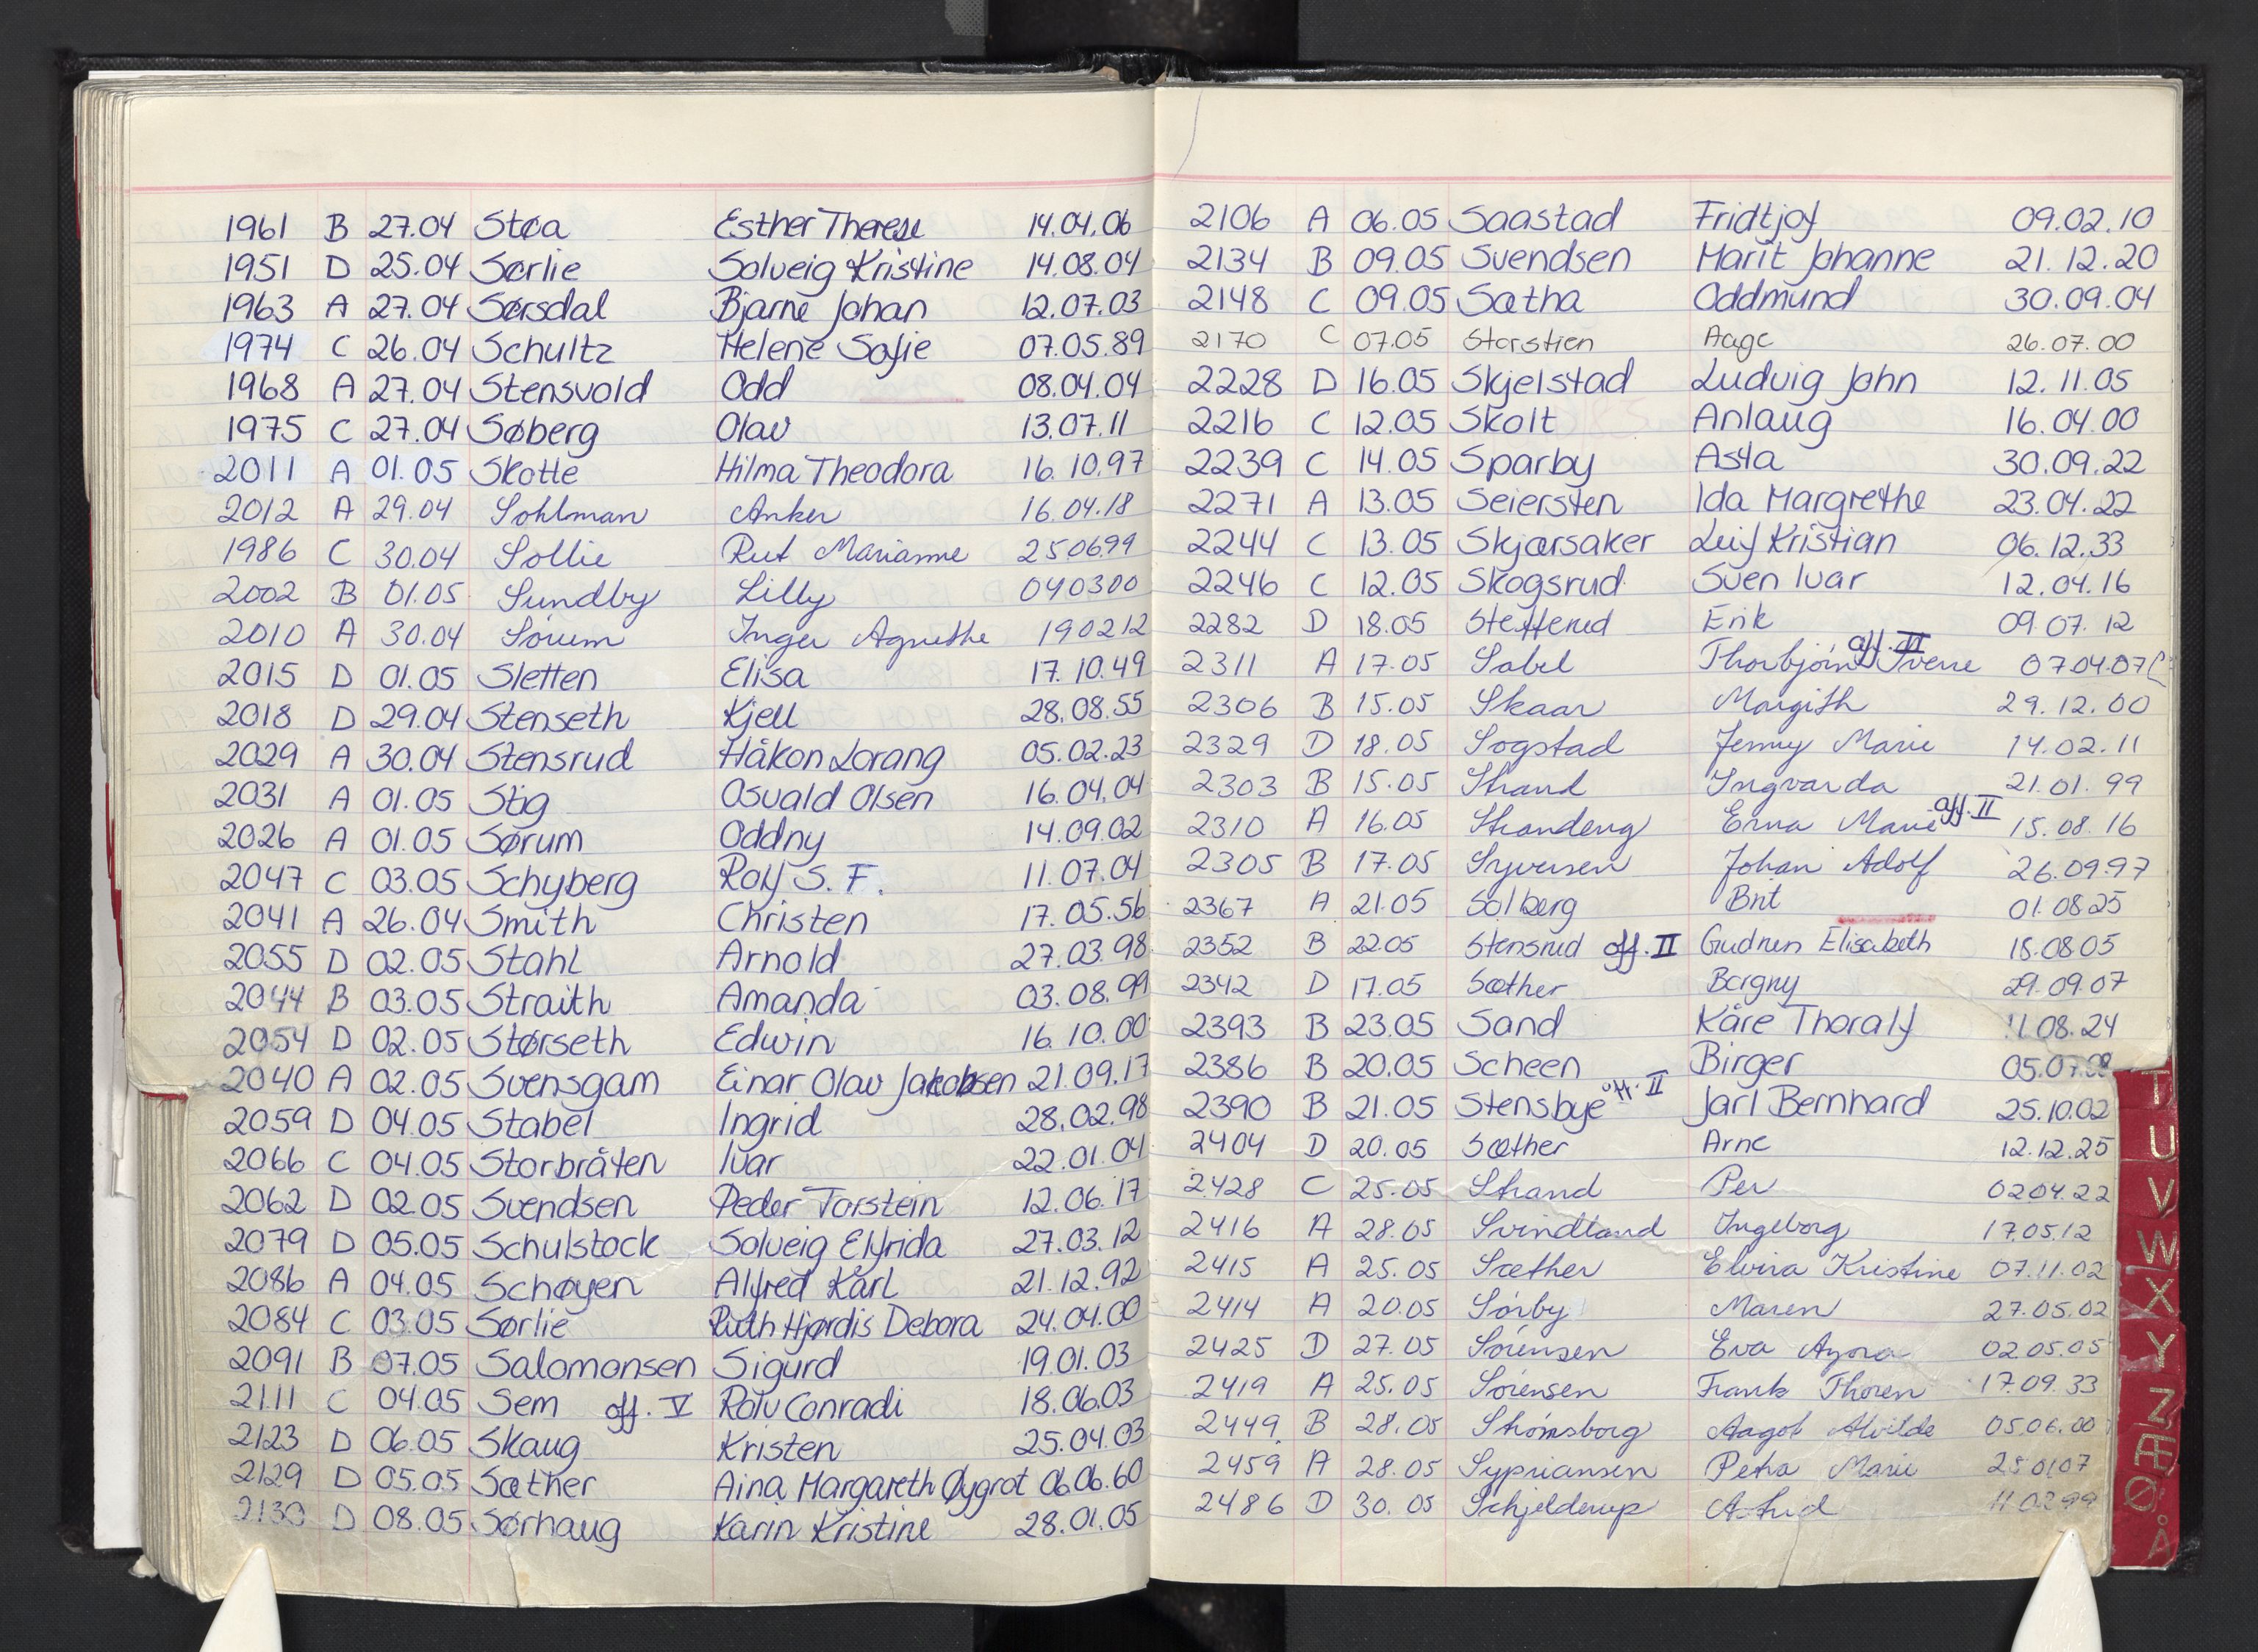 1961 B 27.04 Støa Esther Therese 14.04.06
1951 D 25.04 Sørlie Solveig Kristine 14.08.04
1963 A 27.04 Sørsdal Bjarne Johan 12.07.03
1974 C 26.04 Schultz Helene Sofie 07.05.89
1968 A 27.04 Stensvold Odd 08.04.04
1975 C 27.04 Søberg Olav 13.07.11
2011 A 01.05 Skotte Hilma Theodora 16.10.97
2012 A 29.04 Sohlman Anker 16.04.18
1986 C 30.04 Sollie Rut Marianne 250699
2002 B 01.05 Sundby Lilly 040300
2010 A 30.04 Sørum Inger Agnethe 190212
2015 D 01.05 Sletten Elisa 17.10.49
2018 D 29.04 Stenseth Kjell 28.08.55
2029 A 30.04 Stensrud Håkon Lorang 05.02.23
2031 A 01.05 Stig Osvald Olsen 16.04.04
2026 A 01.05 Sørum Oddny 14.09.02
2047 C 03.05 Schyberg Rolf S. F. 11.07.04
2041 A 26.04 Smith Christen 17.05.56
2055 D 02.05 Stahl Arnold 27.03.98
2044 B 03.05 Straith Amanda 03.08.99
2054 D 02.05 Størseth Edwin 16.10.00
2040 A 02.05 Svensgam Einar Olav Jakobsen 21.09.17
2059 D 04.05 Stabel Ingrid 28.02.98
2066 C 04.05 Storbråten Ivar 22.01.04
2062 D 02.05 Svendsen Peder Torstein 12.06.17
2079 D 05.05 Schulstock Solveig Elfrida 27.03.12
2086 A 04.05 Schøyen Alfred Karl 21.12.92
2084 C 03.05 Sørlie Ruth Hjørdis Debora 24.04.00
2091 B 07.05 Salomonsen Sigurd 19.01.03
2111 C 04.05 Sem off. V Rolv Conradi 18.06.03
2123 D 06.05 Skaug Kristen 25.04.03
2129 D 05.05 Sæther Aina Margareth Øygrot 06.06.60
2130 D 08.05 Sørhaug Karin Kristine 28.01.05
2106 A 06.05 Saastad Fridtjof 09.02.10
2134 B 09.05 Svendsen Marit Johanne 21.12.20
2148 C 09.05 Sætha Oddmund 30.09.04
2170 C 07.05 Storstien Aage 26.07.00
2228 D 16.05 Skjelstad Ludvig John 12.11.05
2216 C 12.05 Skolt Anlaug 16.04.00
2239 C 14.05 Sparby Asta 30.09.22
2271 A 13.05 Seiersten Ida Margrethe 23.04.22
2244 C 13.05 Skjærsaker Leif Kristian 06.12.33
2246 C 12.05 Skogsrud Sven Ivar 12.04.16
2282 D 18.05 Stefferud Erik 09.07.12
2311 A 17.05 Sabel Thorbjørn Sverre off. 07.04.07
2306 B 15.05 Skaar Margith 29.12.00
2329 D 18.05 Sogstad Jenny Marie 14.02.11
2303 B 15.05 Strand Ingvarda 21.01.99
2310 A 16.05 Strandeng Erna Marie off. II 15.08.16
2305 B 17.05 Syversen Johan Adolf 26.09.97
2367 A 21.05 Solberg Brit 01.08.25
2352 B 22.05 Stensrud off. II Gudrun Elisabeth 15.08.05
2342 D 17.05 Sæther Borgny 29.09.07
2393 B 23.05 Sand Kåre Thoralf 11.08.24
2386 B 20.05 Scheen Birger 05.07.08
2390 B 21.05 Stensbye off. II Jarl Bernhard 25.10.02
2404 D 20.05 Sæther Arne 12.12.25
2428 C 25.05 Strand Per 02.04.22
2416 A 28.05 Svindland Ingeborg 17.05.12
2415 A 25.05 Sæther Elvira Kristine 07.11.02
2414 A 20.05 Sørby Maren 27.05.02
2425 D 27.05 Sørensen Eva 02.05.05
2419 A 25.05 Sørensen Frank Thoren 17.09.33
2449 B 28.05 Strømsborg Aagot Alvilde 05.06.00
2459 A 28.05 Sypriansen Petra Marie 250107
2486 D 30.05 Schjelderup Astrid 110299
T
U
V
W
X
Y
Z
Æ
Ø
Å